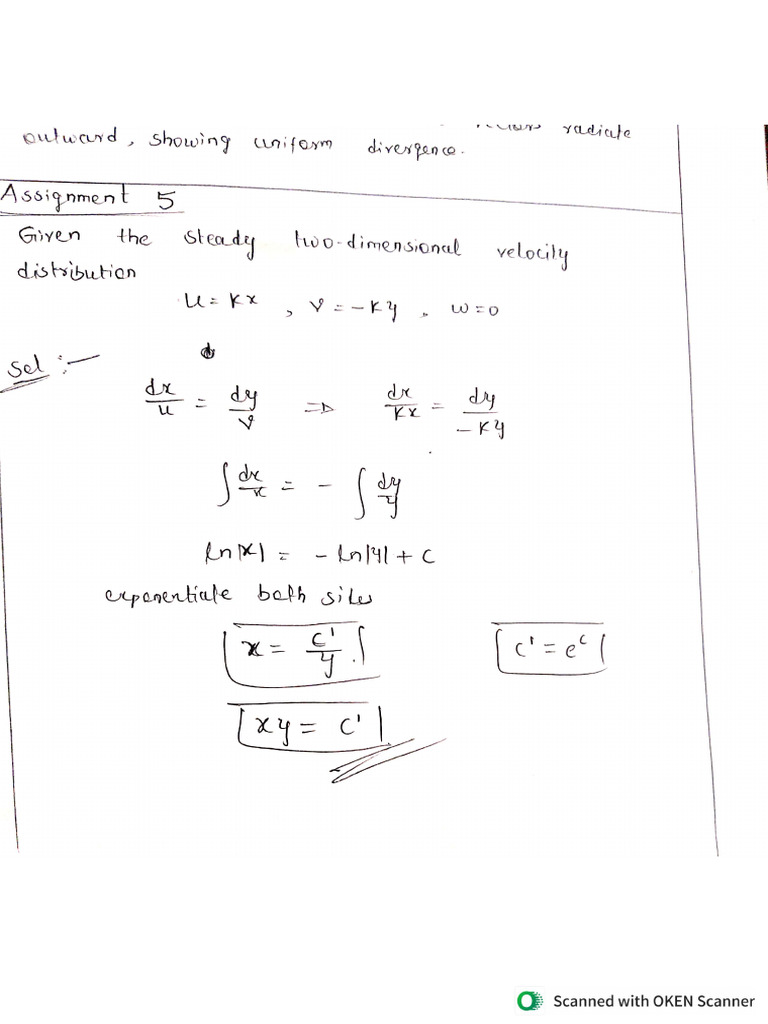 radiate
outward, showing uniform divergence.
Assignment 5
Given the steady two-dimensional velocity
distribution
u = Kx , v = -Ky , w = 0
Sol :-
dx/u = dy/v => dx/Kx = dy/-Ky
∫ dx/x = - ∫ dy/y
ln|x| = - ln|y| + c
exponentiate both sides
x = c'/y . c' = e^c
xy = c'
Scanned with OKEN Scanner